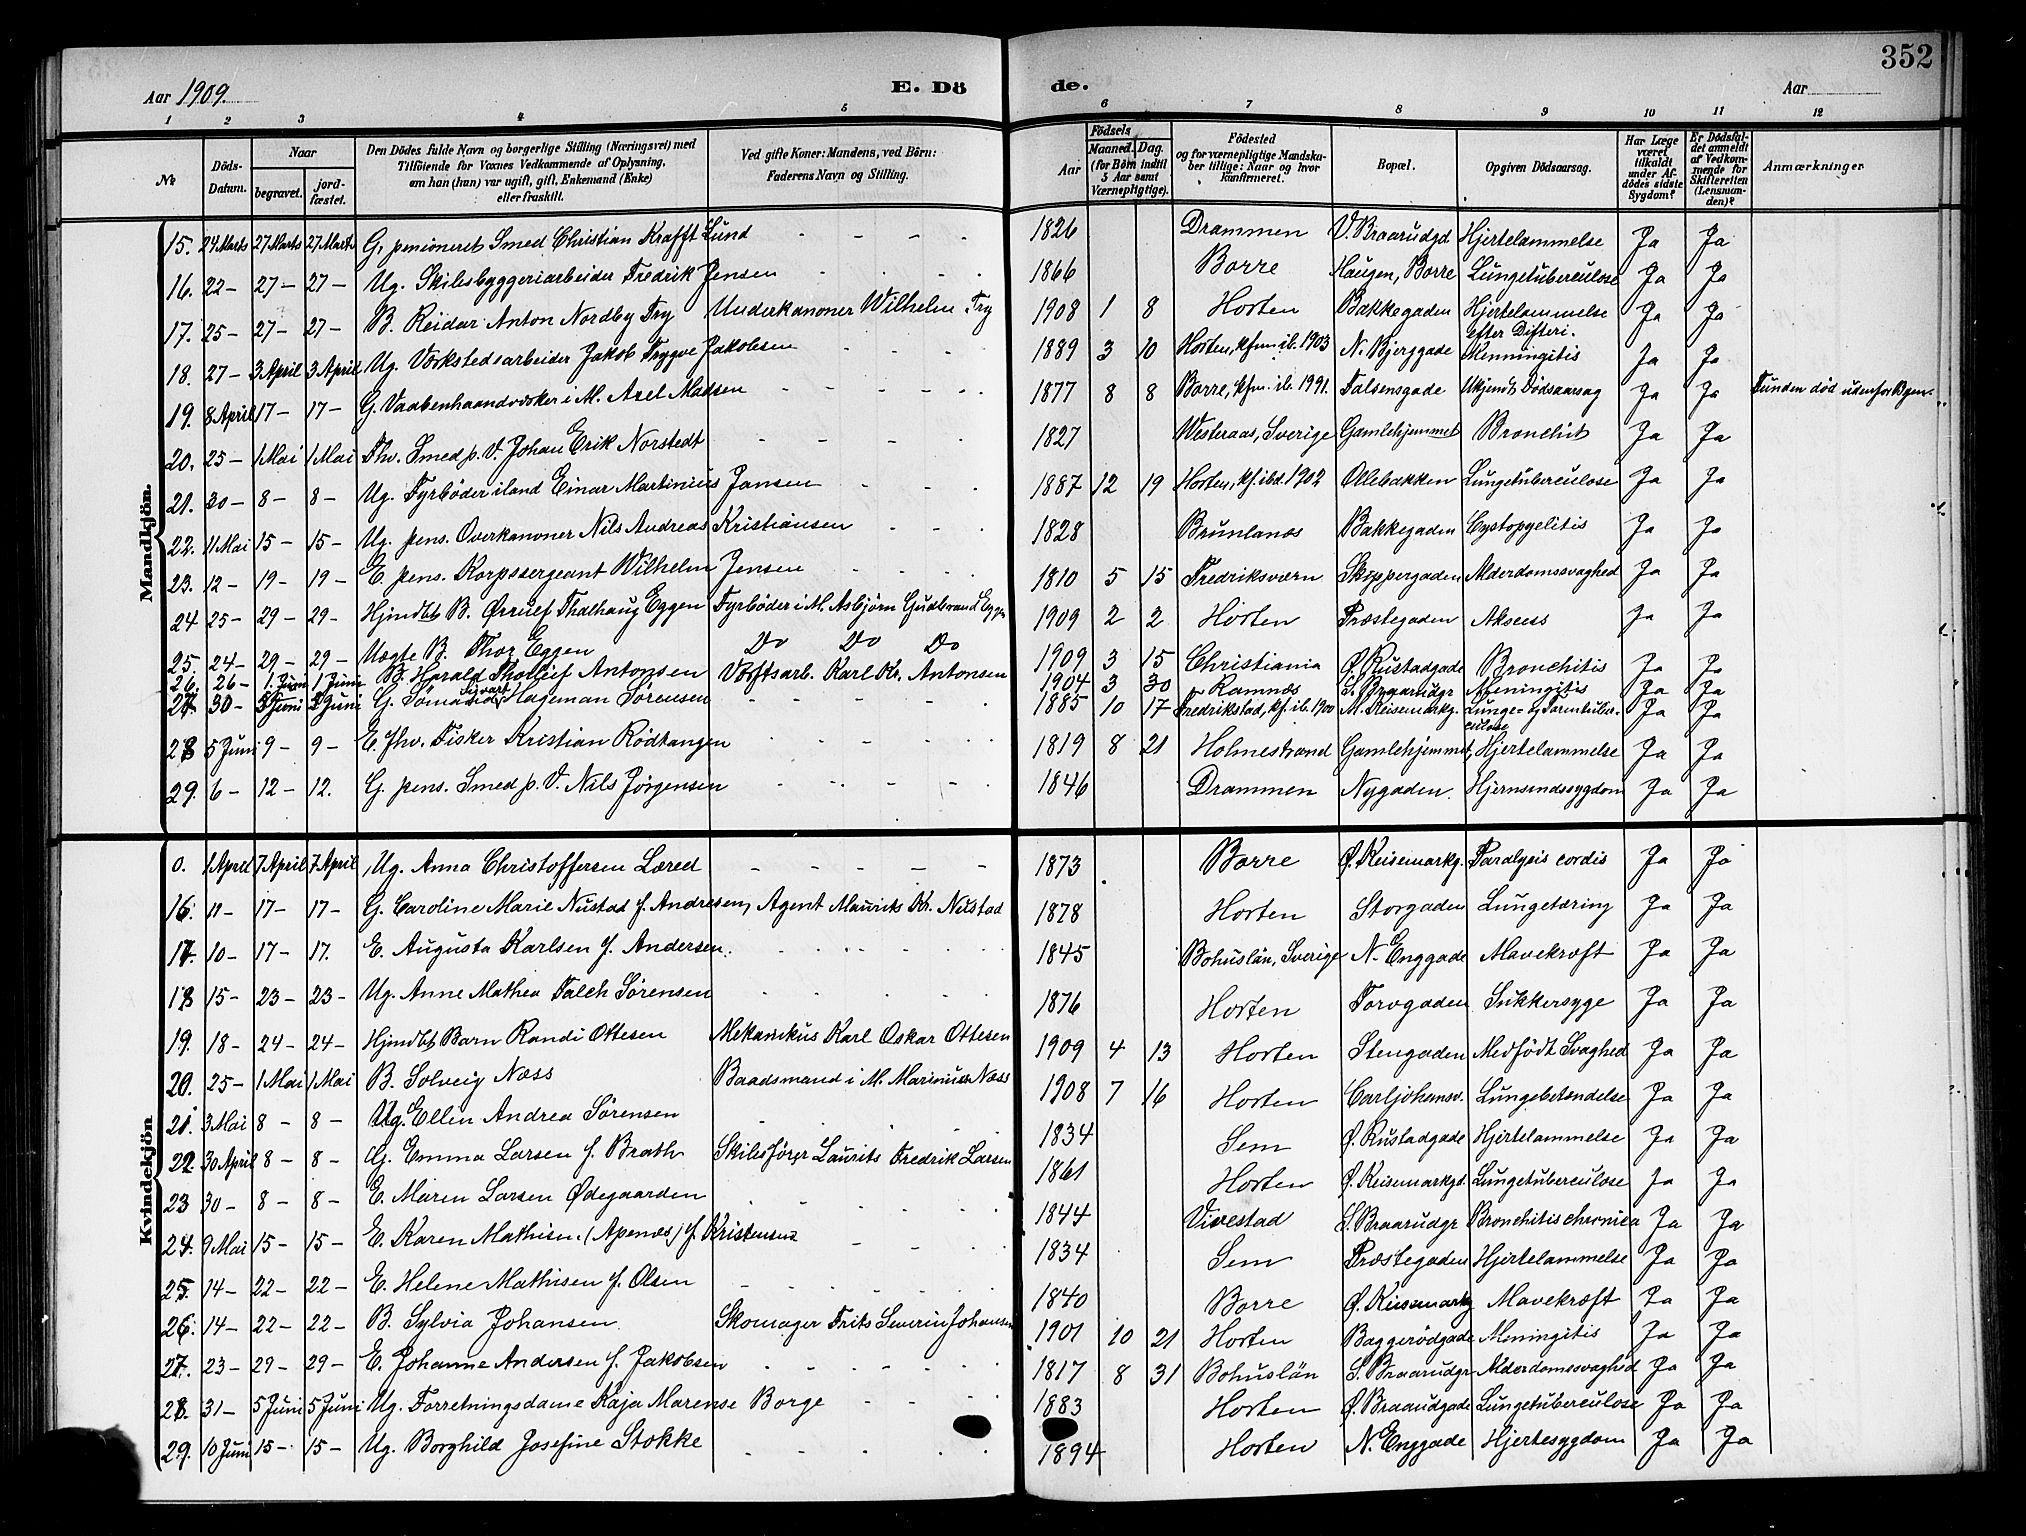 352
Aar 1909. E. Dö de. Aar
1 2 3 4 5 6 7 8 9 10 11 12
No. Döds-Datum. Naar begravet. jord-fæstet. Den Dödes fulde Navn og borgerlige Stilling (Næringsvei) med Tilföiende for Voxnes Vedkommende af Oplysning, om han (hun) var ugift, gift, Enkemand (Enke) eller fraskilt. Ved gifte Koner: Mandens, ved Börn: Faderens Navn og Stilling. Födsels Aar Maaned. Dag. (for Børn indtil 5 Aar samt Værnepligtige). Födested og for værnepligtige Mandskaber tillige: Naar og hvor konfirmeret. Bopæl. Opgiven Dödsaarsag. Har Læge været tilkaldt under Afdödes sidste Sygdom? Er Dödsfaldet anmeldt af Vedkommende for Skifteretten (Lensmanden)? Anmærkninger
Mandkjön.
15. 24 Marts 27 Marts 27 Marts G. pensioneret Smed Christian Krafft Lund 1826 Drammen V. Braarudgd Hjertelammelse Ja Ja
16. 22 – 27 – 27 – Ug. Skibsbyggeriarbeider Fredrik Jensen 1866 Borre Haugen, Borre Lungetuberculose Ja Ja
17. 25 – 27 – 27 – B. Reidar Anton Nordby Fry Underkanoner Wilhelm Fry 1908 1 8 Horten Bakkegaden Hjertelammelse efter Difteri. Ja Ja
18. 27 – 3 April 3 April Ug. Værkstedsarbeider Jakob Trygve Jakobsen 1889 3 10 Horten, kfm. ib. 1903 N. Bjerggade Menningitis Ja Ja
19. 8 April 17 – 17 – G. Vaabenhaandværker i M. Axel Madsen 1877 8 8 Borre, kfm. ib. 1991. Falsensgade Ukjendt Dödsaarsag Ja Ja Funden död udenfor Byen.
20. 25 – 1 Mai 1 Mai Fhv. Smed p. V. Johan Erik Norstedt 1827 Westeraas, Sverige Gamlehjemmet Bronchit Ja Ja
21. 30 – 8 – 8 – Ug. Fyrbøder iland Einar Martinius Jansen 1887 12 19 Horten, kf. ibd. 1902 Ollebakken Lungetuberculose Ja Ja
22. 11 Mai 15 – 15 – Ug. pens. Overkanoner Nils Andreas Kristiansen 1828 Brunlanæs Bakkegaden Cystopyelitis Ja Ja
23. 12 – 19 – 19 – E. pens. Korpssergeant Wilhelm Jensen 1810 5 15 Fredriksværn Skippergaden Alderdomssvaghed Ja Ja
24 25 – 29 – 29 – Hjmdbt B. Ørnulf Thalhaug Eggen Fyrbøder i M. Asbjørn Gudbrand Eggen 1909 2 2 Horten Præstegaden Aksess Ja Ja
25 24 – 29 – 29 – Uægte B. Thor Eggen Do Do Do 1909 3 15 Christiania Ø. Rustadgade Bronchitis Ja Ja
26. 26 – 1 Juni 1 Juni B. Harald Thollief Antonsen Værftsarb. Karl Kr. Antonsen 1904 3 30 Ramnæs S. Braarudgr Meningitis Ja Ja
27. 30 – 5 Juni 5 Juni G. Sømand Sigvart Hageman Sørensen 1885 10 17 Fredrikstad, kf. ib. 1900 M. Keisemarkg. Lunge- og Tarmtuberculose Ja Ja
28 5 Juni 9 – 9 – E. fhv. Fisker Kristian Rödtangen 1819 8 21 Holmestrand Gamlehjemmet, Hjertelammelse Ja Ja
29. 6 – 12 – 12. G. pens. Smed p. V. Nils Jørgensen 1846 Drammen Nygaden. Hjernsindssygdom Ja Ja
Kvindekjön
0. 1 April 7 April 7 April Ug. Anna Christoffersen Læred 1873 Borre Ø. Keisemarkg. Paralysis cordis Ja Ja
16. 11 – 17 – 17 – G. Caroline Marie Nustad f. Andresen, Agent Maurits Kr. Nilstad 1878 Horten Storgaden Lungetæring Ja Ja
17. 10 – 17 – 17. E. Augusta Karlsen f. Andersen. 1845 Bohuslän, Sverige N. Enggade Mavekræft Ja Ja
18 15 – 23 – 23 – Ug. Anne Mathea Falch Sørensen 1876 Horten Torvgaden Sukkersyge Ja Ja
19. 18 – 24 – 24 – Hjmdbt Barn Randi Ottesen Mekanikus Karl Oskar Ottesen 1909 4 13 Horten Stengaden Medfödt Svaghed Ja Ja
20. 25 – 1 Mai 1 Mai B. Solveig Næss Baadsmand i M. Marinius Næss 1908 7 16 Horten Carljohansv. Lungebetændelse Ja Ja
21. 3 Mai 8 – 8 – Ug. Ellen Andrea Sørensen 1834 Sem Ø. Rustadgade Hjertelammelse Ja Ja
22 30 April 8 – 8 – G. Emma Larsen f. Brath Skibsfører Laurits Fredrik Larsen 1861 Horten Ø. Keisemarkgd. Lungetuberculose Ja Ja
23 30 – 8 – 8 – E. Maren Larsen Ødegaarden 1844 Vivestad S. Braarudgr Bronchitis chronica Ja Ja
24. 9 Mai 15 – 15 – E. Karen Mathisn. (Apenæs) f. Kristensen 1834 Sem Præstegaden Hjertelammelse Ja Ja
25. 14 – 22 – 22 – E. Helene Mathisen f. Olsen 1840 Borre Ø. Keisemarkg Mavekræft Ja Ja
26. 14 – 22 – 22 – B. Sylvia Johansen Skomager Frits Severin Johansen 1901 10 21 Horten Baggerödgade Meningitis Ja Ja
27. 23 – 29 – 29 – E. Johanne Andersen f. Jakobsen 1817 8 31 Bohuslän S. Braarudgr Alderdomssvaghed Ja Ja
28. 31 – 5 Juni 5 Juni Ug. Forretningsdame Kaja Marense Borge 1883 Horten Ø. Braarudgade Lungetuberculose Ja Ja
29. 10 Juni 15 – 15 – Ug. Borghild Josefine Stokke 1894 Horten N. Enggade Hjertesygdom Ja Ja